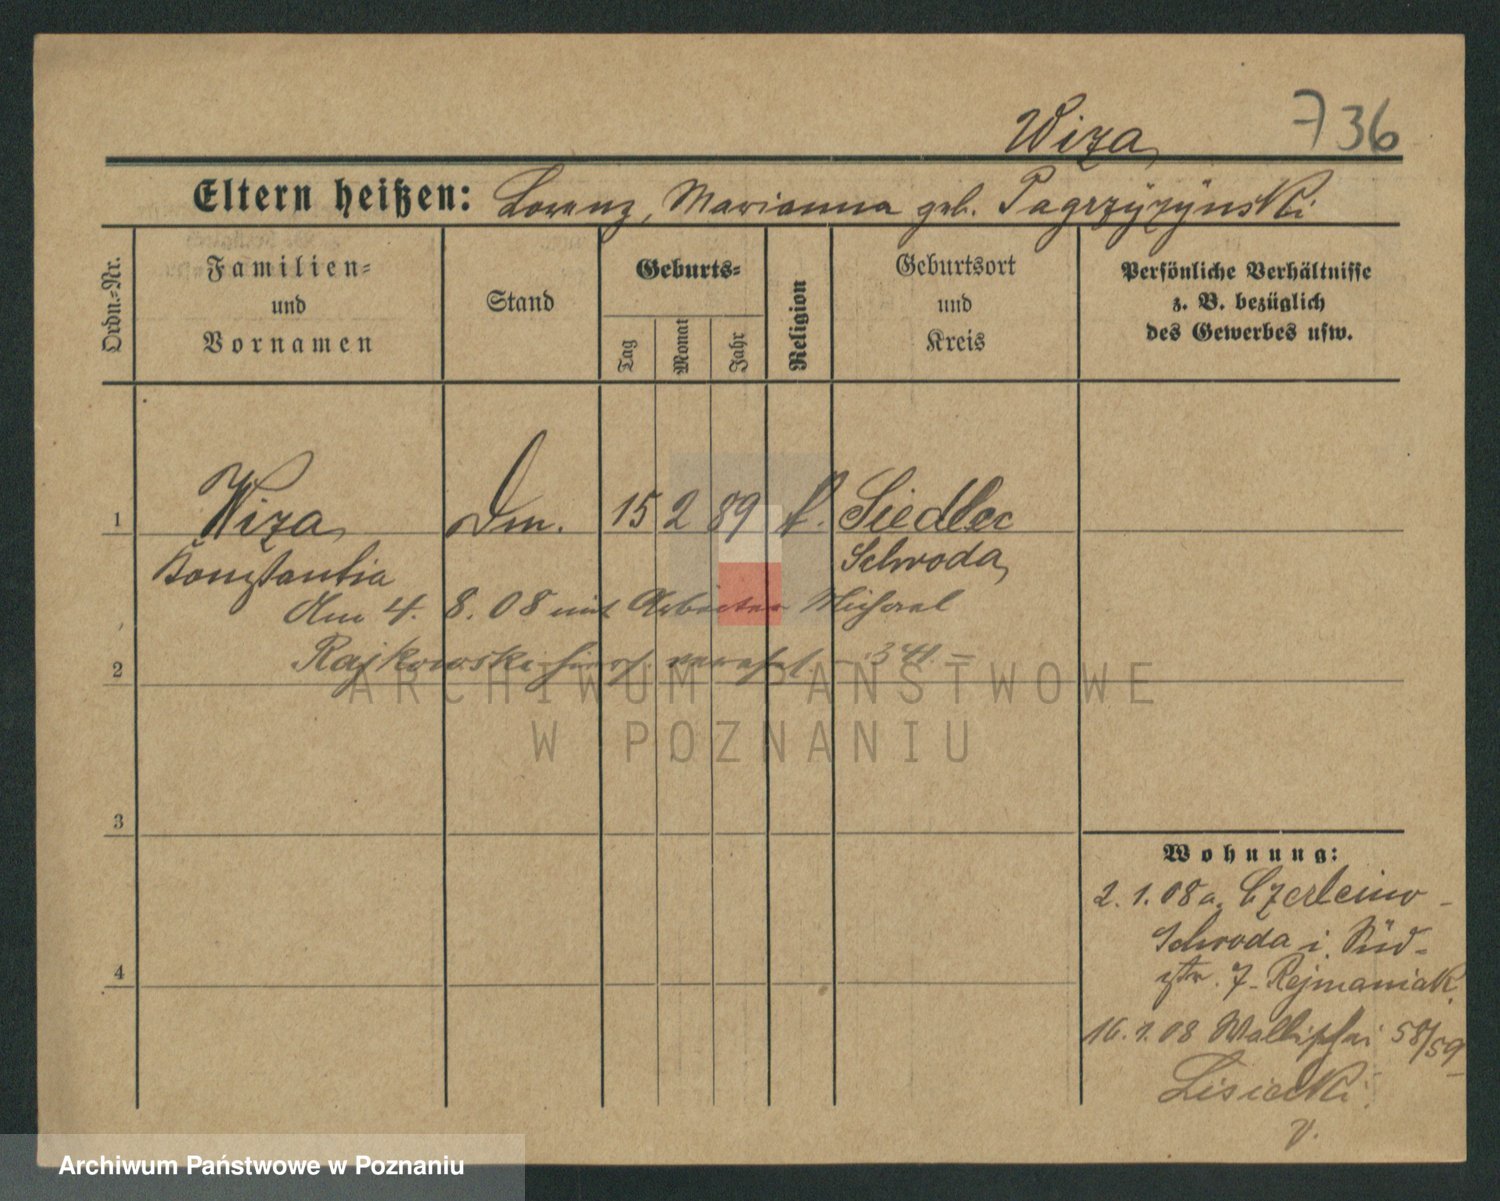 Wiza, 736
Eltern heißen: Lorenz, Marianna geb. Pagrzyzynski
Ordn.-Nr.
Familien-
und
Vornamen
Stand
Geburts-
Tag
Monat
Jahr
Religion
Geburtsort
und
Kreis
Persönliche Verhältnisse
z. B. bezüglich
des Gewerbes usw.
1 Wiza, Dm. 15 2 89 k. Siedlec
Konstantia Schroda,
Am 4. 8. 08 mit Arbeiter Michael
2 Rajkowski hier verehel. 341.
ARCHIWUM PAŃSTWOWE
W POZNANIU
3
Wohnung:
2. 1. 08 a. Czerleino -
Schroda i. Süd-
str. 7 - Rejmaniak.
4
16. 1. 08 Wallischei 58/59
Lisiacki
v.
Archiwum Państwowe w Poznaniu